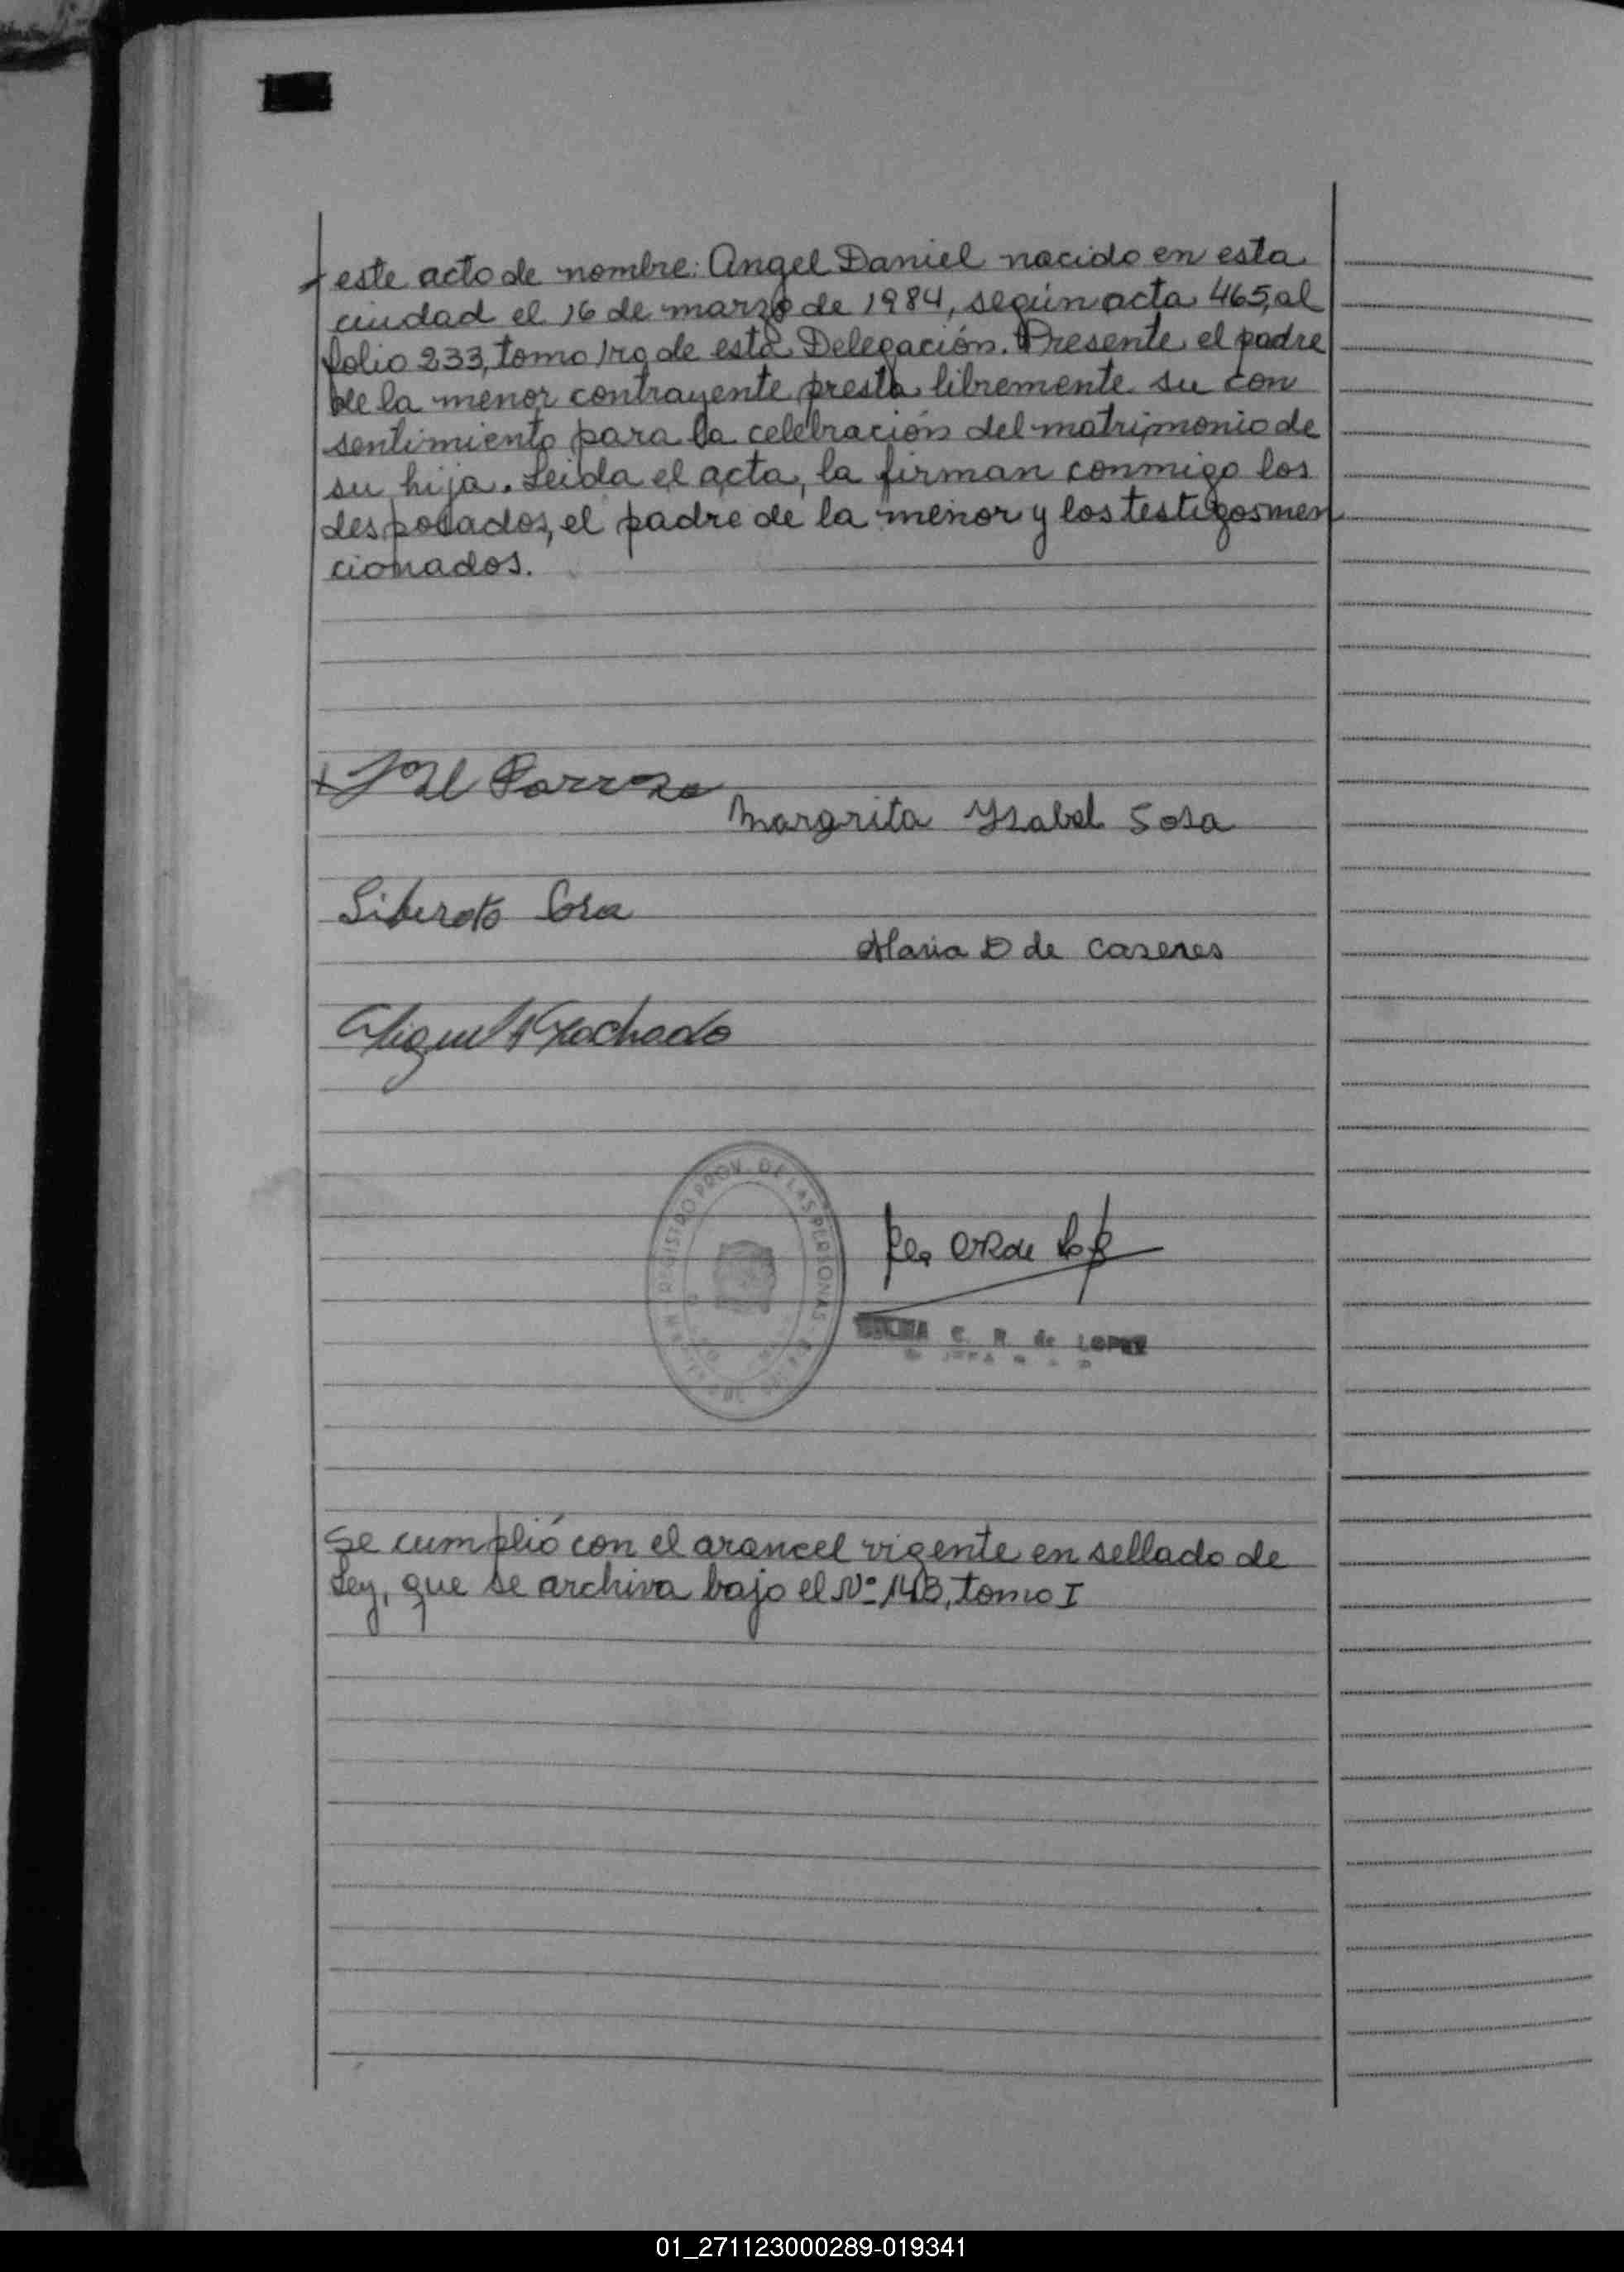 este acto de nombre: Angel Daniel nacido en esta
ciudad el 16 de marzo de 1984, según acta 465, al
folio 233, tomo 1ro de esta Delegación. Presente el padre
de la menor contrayente presta libremente su con
sentimiento para la celebración del matrimonio de
su hija. Leida el acta, la firman conmigo los
desposados, el padre de la menor y los testigos men
cionados.
Margrita Ysabel Sosa
Liberato Sosa
Maria D de Caseres
Miguel A Machado
REGISTRO PROV. DE LAS PERSONAS
C. R. de LOPEZ
Se cumplió con el arancel vigente en sellado de
Ley, que se archiva bajo el Nº 143, tomo I
01_271123000289-019341